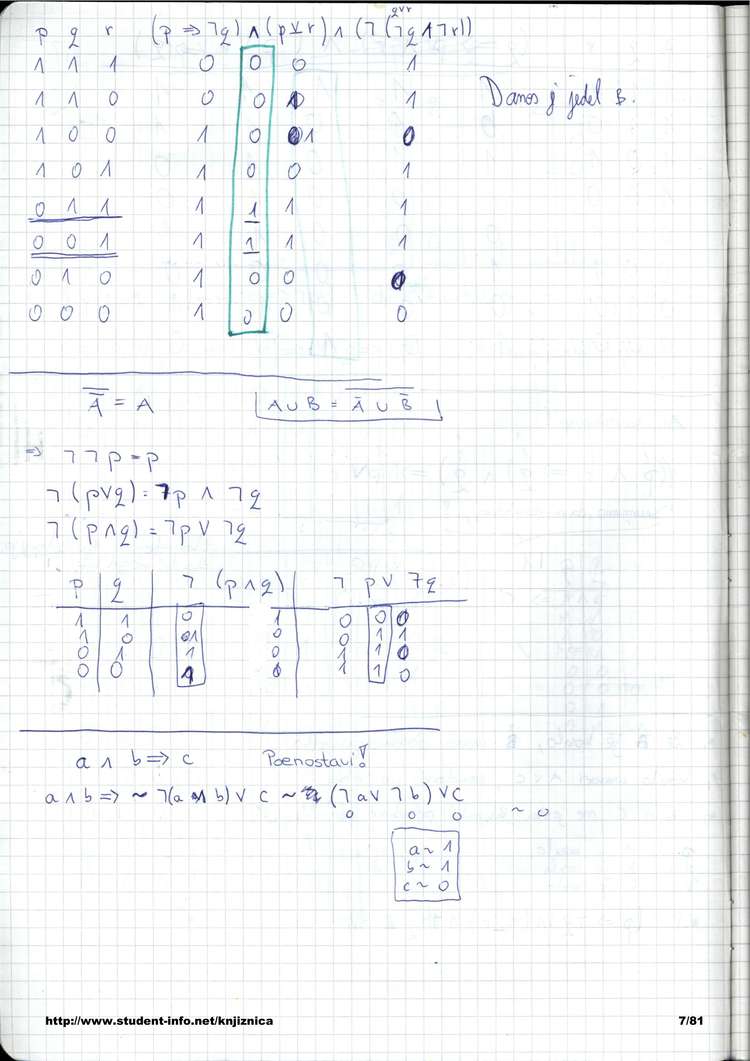 p q r (p ⇒ ¬q) ∧ (p ⊻ r) ∧ (¬(¬q ∧ ¬r))
q∨r
1 1 1 0 0 0 1
1 1 0 0 0 1 1 Danes j jedel B.
1 0 0 1 0 1 0
1 0 1 1 0 0 1
0 1 1 1 1 1 1
0 0 1 1 1 1 1
0 1 0 1 0 0 0
0 0 0 1 0 0 0
A̿ = A A ∪ B = Ā ∪ B̄
⇒ ¬¬p = p
¬(p∨q) = ¬p ∧ ¬q
¬(p∧q) = ¬p ∨ ¬q
p q ¬ (p∧q) ¬ p∨ ¬q
1 1 0 1 0 0 0
1 0 1 0 0 1 1
0 1 1 0 1 1 0
0 0 1 0 1 1 0
a ∧ b ⇒ c Poenostavi!
a ∧ b ⇒ ~ ¬(a ∧ b) ∨ c ~ (¬a ∨ ¬b) ∨ c
0 0 0 ~ 0
a ~ 1
b ~ 1
c ~ 0
http://www.student-info.net/knjiznica 7/81